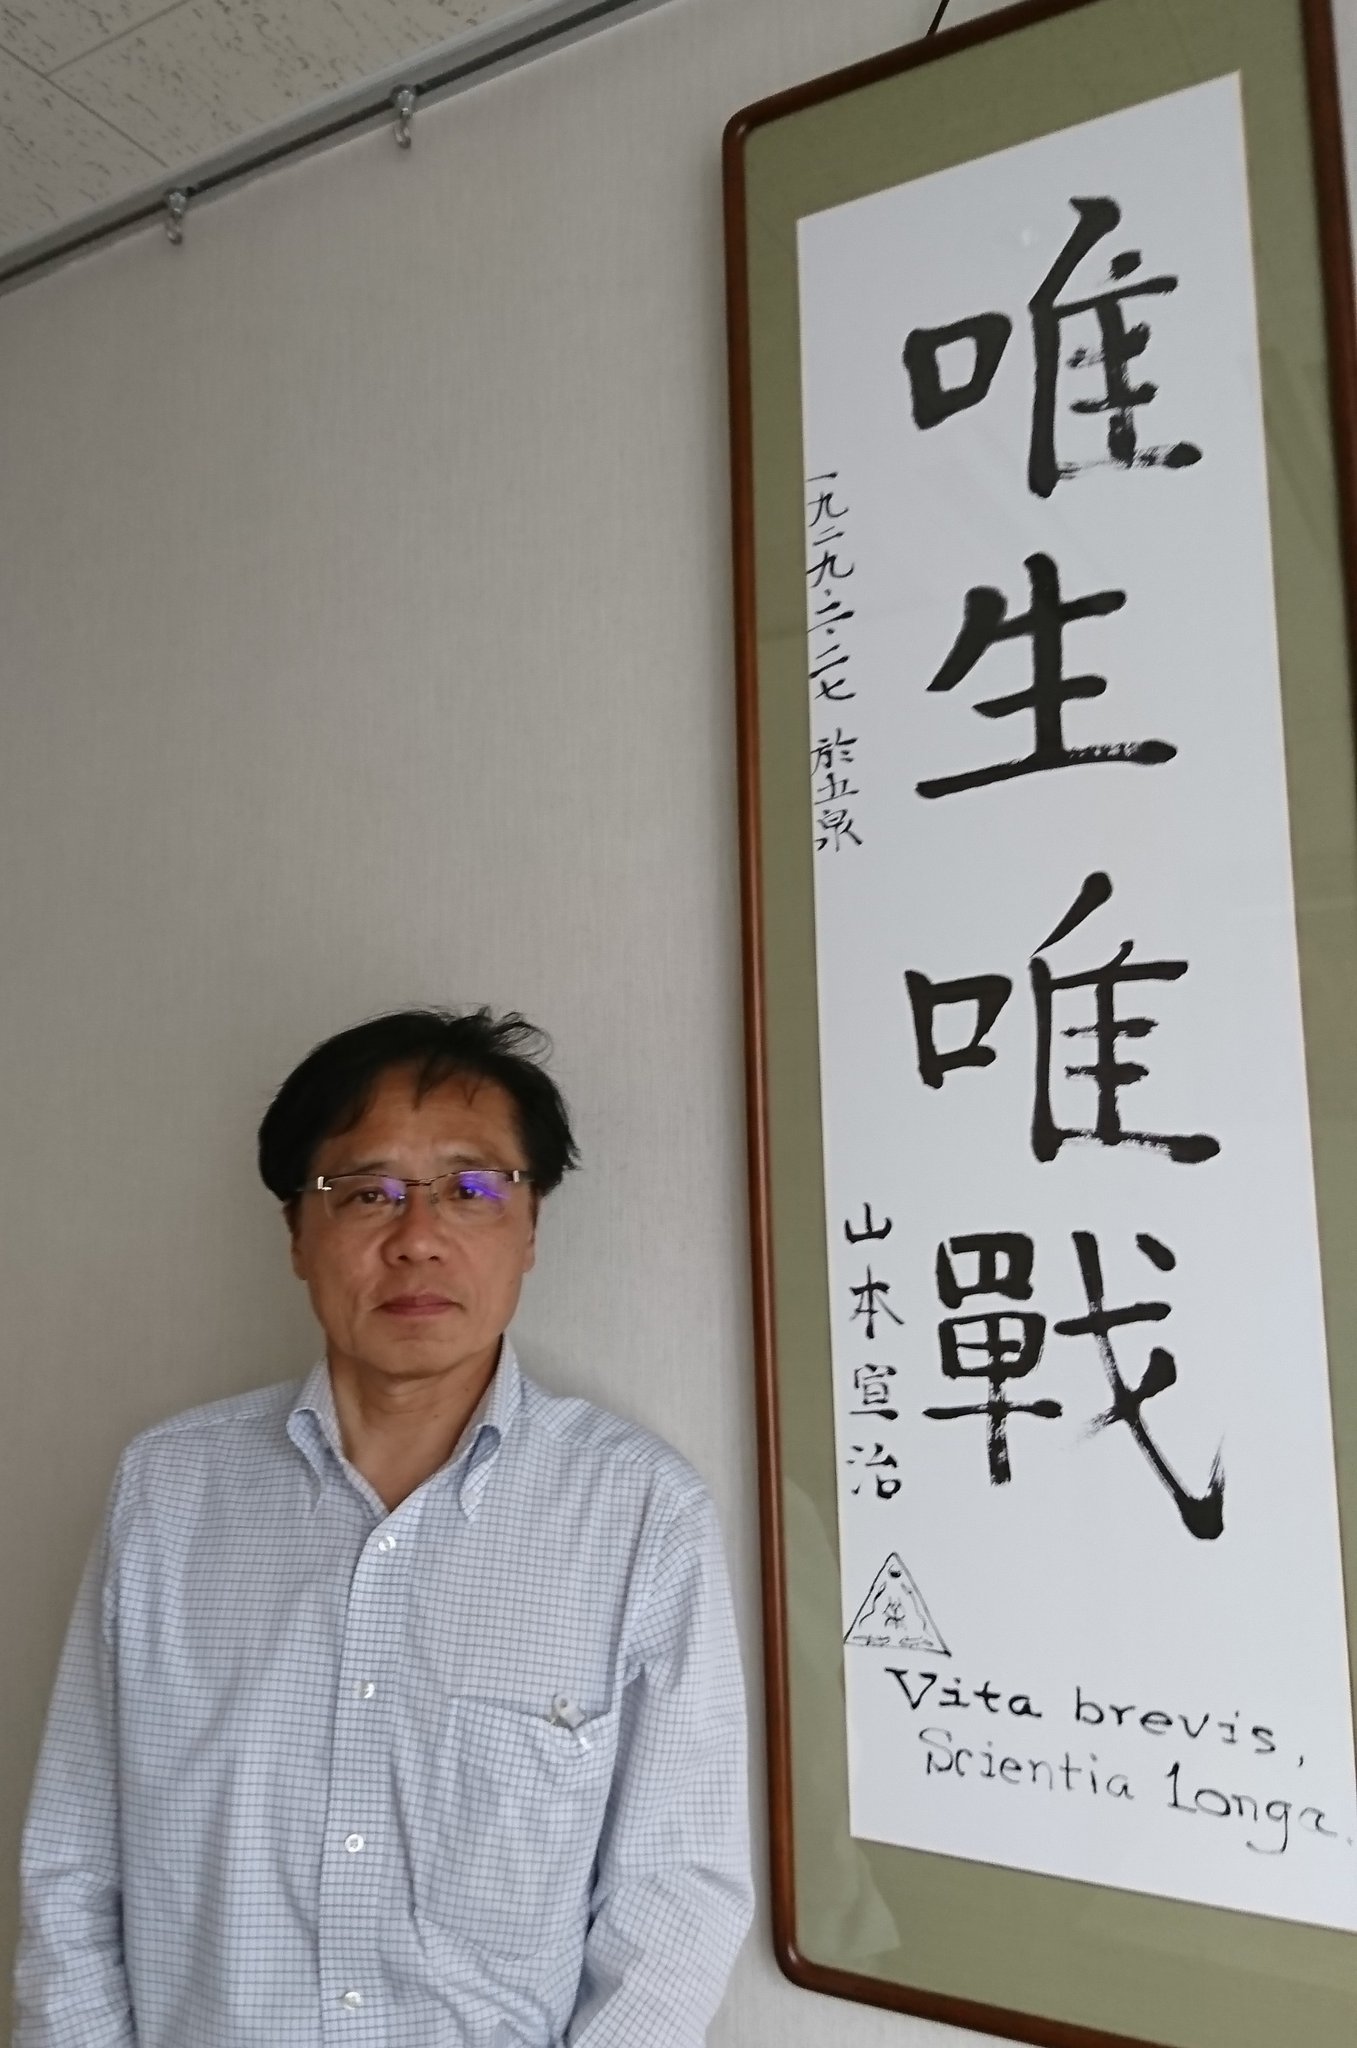 唯生唯戰
一九二九・二・二七 於五泉
山本宣治
Vita brevis,
Scientia longa.